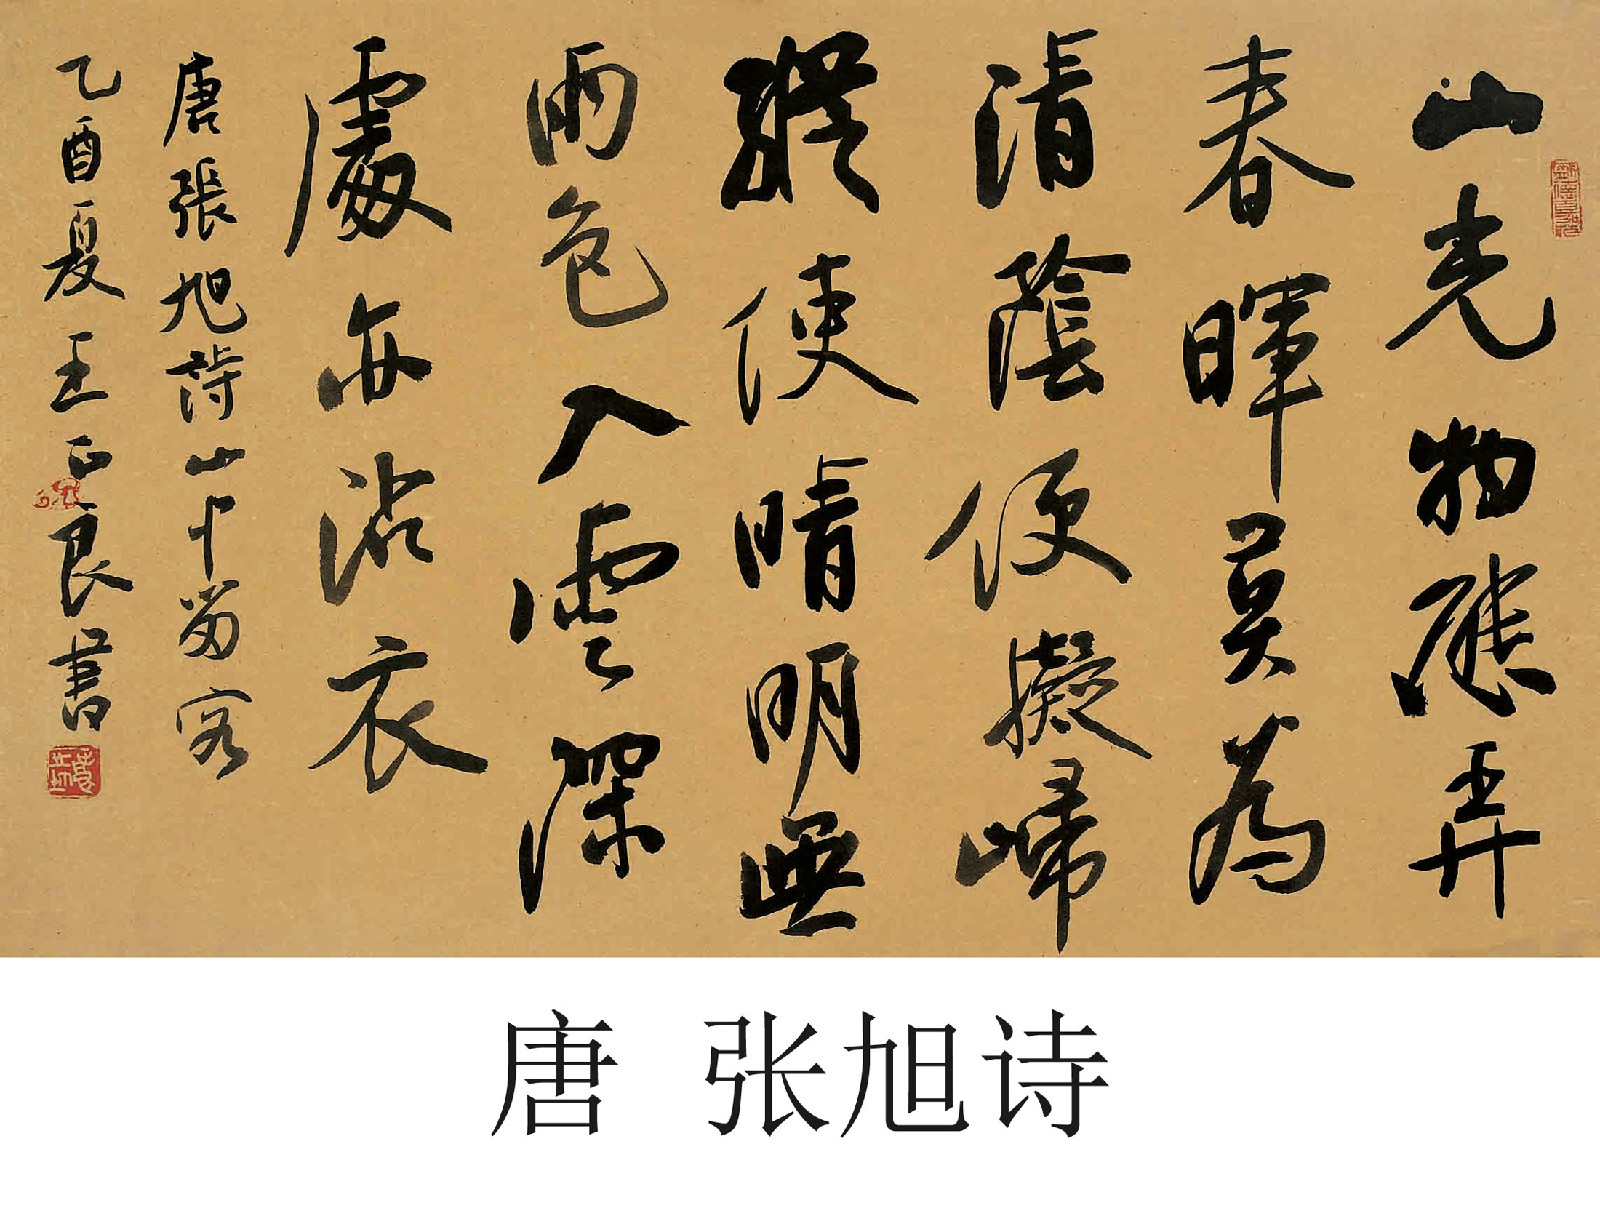 山光物態弄
春暉莫為
清陰便擬歸
縱使晴明無
雨色入雲深
處亦沾衣
唐張旭詩山中留客
乙酉夏王正良書
唐 张旭诗